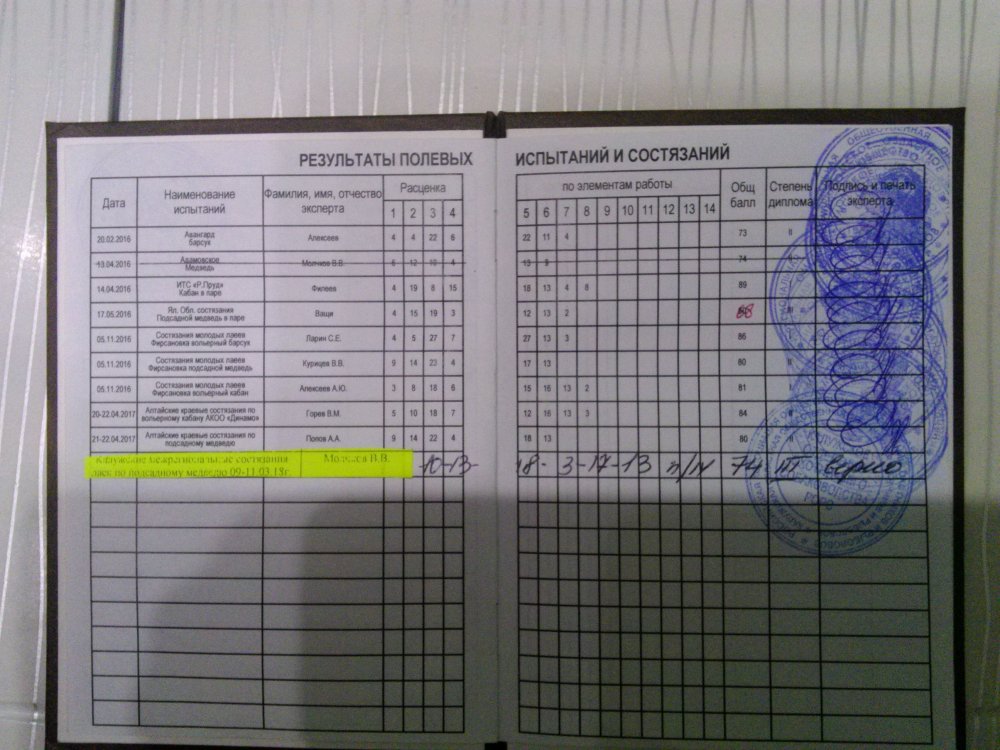 РЕЗУЛЬТАТЫ ПОЛЕВЫХ ИСПЫТАНИЙ И СОСТЯЗАНИЙ
Дата Наименование испытаний Фамилия, имя, отчество эксперта Расценка по элементам работы Общ балл Степень диплома Подпись и печать эксперта
1 2 3 4 5 6 7 8 9 10 11 12 13 14
20.02.2016 Авангард барсук Алексеев 4 4 22 6 22 11 4 73 II
13.04.2016 Медведь Молчков В.В. 6 12 4 13 9 74
14.04.2016 ИТС «Р.Пруд» Кабан в паре Филеев 4 19 8 15 18 13 4 8 89
17.05.2016 Ял. Обл. состязания Подсадной медведь в паре Ваши 4 15 19 3 12 13 2 III
05.11.2016 Состязания молодых лаеев Фирсановка вольерный барсук Ларин С.Е. 4 5 27 7 27 13 3 86
05.11.2016 Состязания молодых лаеев Фирсановка подсадной медведь Курицев В.В. 9 14 23 4 17 13 80 II
05.11.2016 Состязания молодых лаеев Фирсановка вольерный кабан Алексеев А.Ю. 3 8 18 6 15 16 13 2 81 I
20-22.04.2017 Алтайские краевые состязания по вольерному кабану АКОО «Динамо» Горев В.М. 5 10 18 7 12 16 13 3 84 II
21-22.04.2017 Алтайские краевые состязания по подсадному медведю Попов А.А. 9 14 22 4 18 13 80 II
Калужские межрегиональные состязания Молчков В.В.
лаек по подсадному медведю 09-11.03.18г. 10-13- 18- 3-17-13 п/п 74 III верно